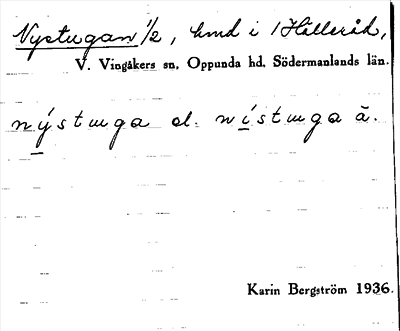 Nystugan 1/2, hmd i Hälleråd,
V. Vingåkers sn, Oppunda hd. Södermanlands län.
nýstuga el. nístuga ā.
Karin Bergström 1936.